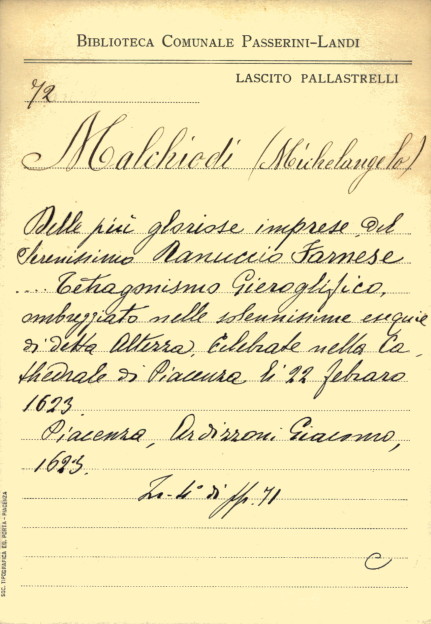 BIBLIOTECA COMUNALE PASSERINI-LANDI
LASCITO PALLASTRELLI
72
Malchiodi (Michelangelo)
Delle più gloriose imprese del
Serenissimo Ranuccio Farnese
.... Tetragonismo Gieroglifico,
ombreggiato nelle solennissime esequie
di detta Altezza, celebrate nella Ca,
thedrale di Piacenza li 22 febraro
1623.
Piacenza, Ardizzoni Giacomo,
1623.
In-4° di pp. 71
C
SOC. TIPOGRAFICA ED. PORTA - PIACENZA